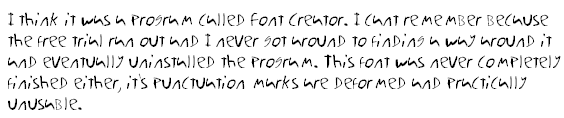 I think it was a program called Font Creator. I cant remember because
the free trial ran out and I never got around to finding a way around it
and eventually uninstalled the program. This font was never completely
finished either, it's punctuation marks are deformed and practically
unusable.